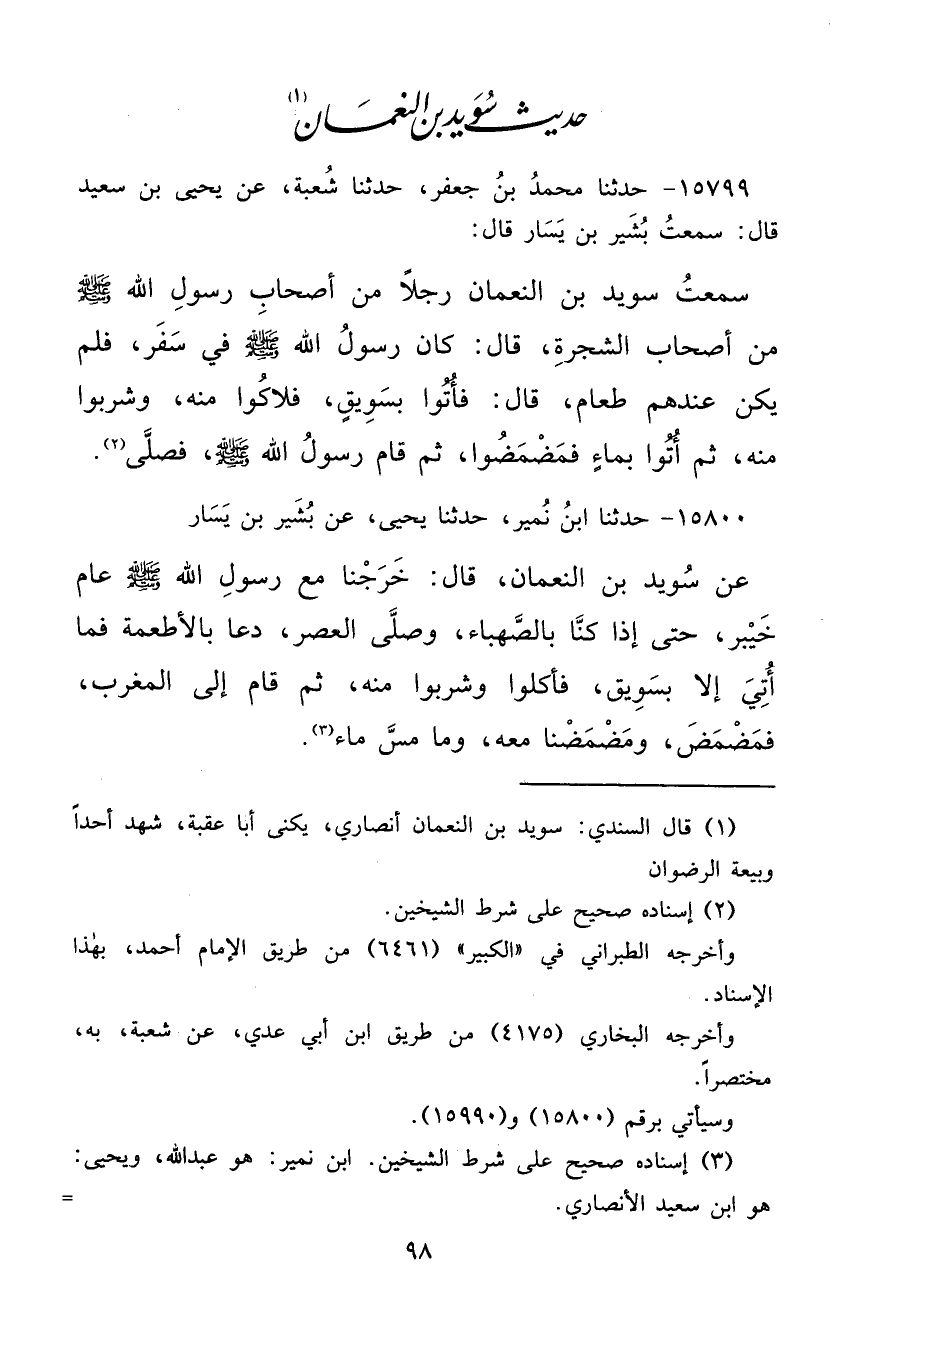 حديث سُوَيد بن النعمان(١)
١٥٧٩٩- حدثنا محمدُ بنُ جعفر، حدثنا شُعبة، عن يحيى بن سعيد
قال: سمعتُ بُشَير بن يَسَار قال:
سمعتُ سويد بن النعمان رجلاً من أصحابِ رسولِ الله ﷺ
من أصحاب الشجرةِ، قال: كان رسولُ الله ﷺ في سَفَر، فلم
يكن عندهم طعام، قال: فأُتُوا بسَوِيقٍ، فلاكُوا منه، وشربوا
منه، ثم أُتُوا بماءٍ فمَضْمَضُوا، ثم قام رسولُ الله ﷺ، فصلَّى(٢).
١٥٨٠٠- حدثنا ابنُ نُمير، حدثنا يحيى، عن بُشَير بن يَسَار
عن سُويد بن النعمان، قال: خَرَجْنا مع رسولِ الله ﷺ عام
خَيْبر، حتى إذا كنَّا بالصَّهباء، وصلَّى العصر، دعا بالأطعمة فما
أُتِيَ إلا بسَوِيق، فأكلوا وشربوا منه، ثم قام إلى المغرب،
فمَضْمَضَ، ومَضْمَضْنا معه، وما مسَّ ماء(٣).
(١) قال السندي: سويد بن النعمان أنصاري، يكنى أبا عقبة، شهد أحداً
وبيعة الرضوان
(٢) إسناده صحيح على شرط الشيخين.
وأخرجه الطبراني في «الكبير» (٦٤٦١) من طريق الإمام أحمد، بهٰذا
الإسناد.
وأخرجه البخاري (٤١٧٥) من طريق ابن أبي عدي، عن شعبة، به،
مختصراً.
وسيأتي برقم (١٥٨٠٠) و(١٥٩٩٠).
(٣) إسناده صحيح على شرط الشيخين. ابن نمير: هو عبدالله، ويحيى:
هو ابن سعيد الأنصاري. =
٩٨